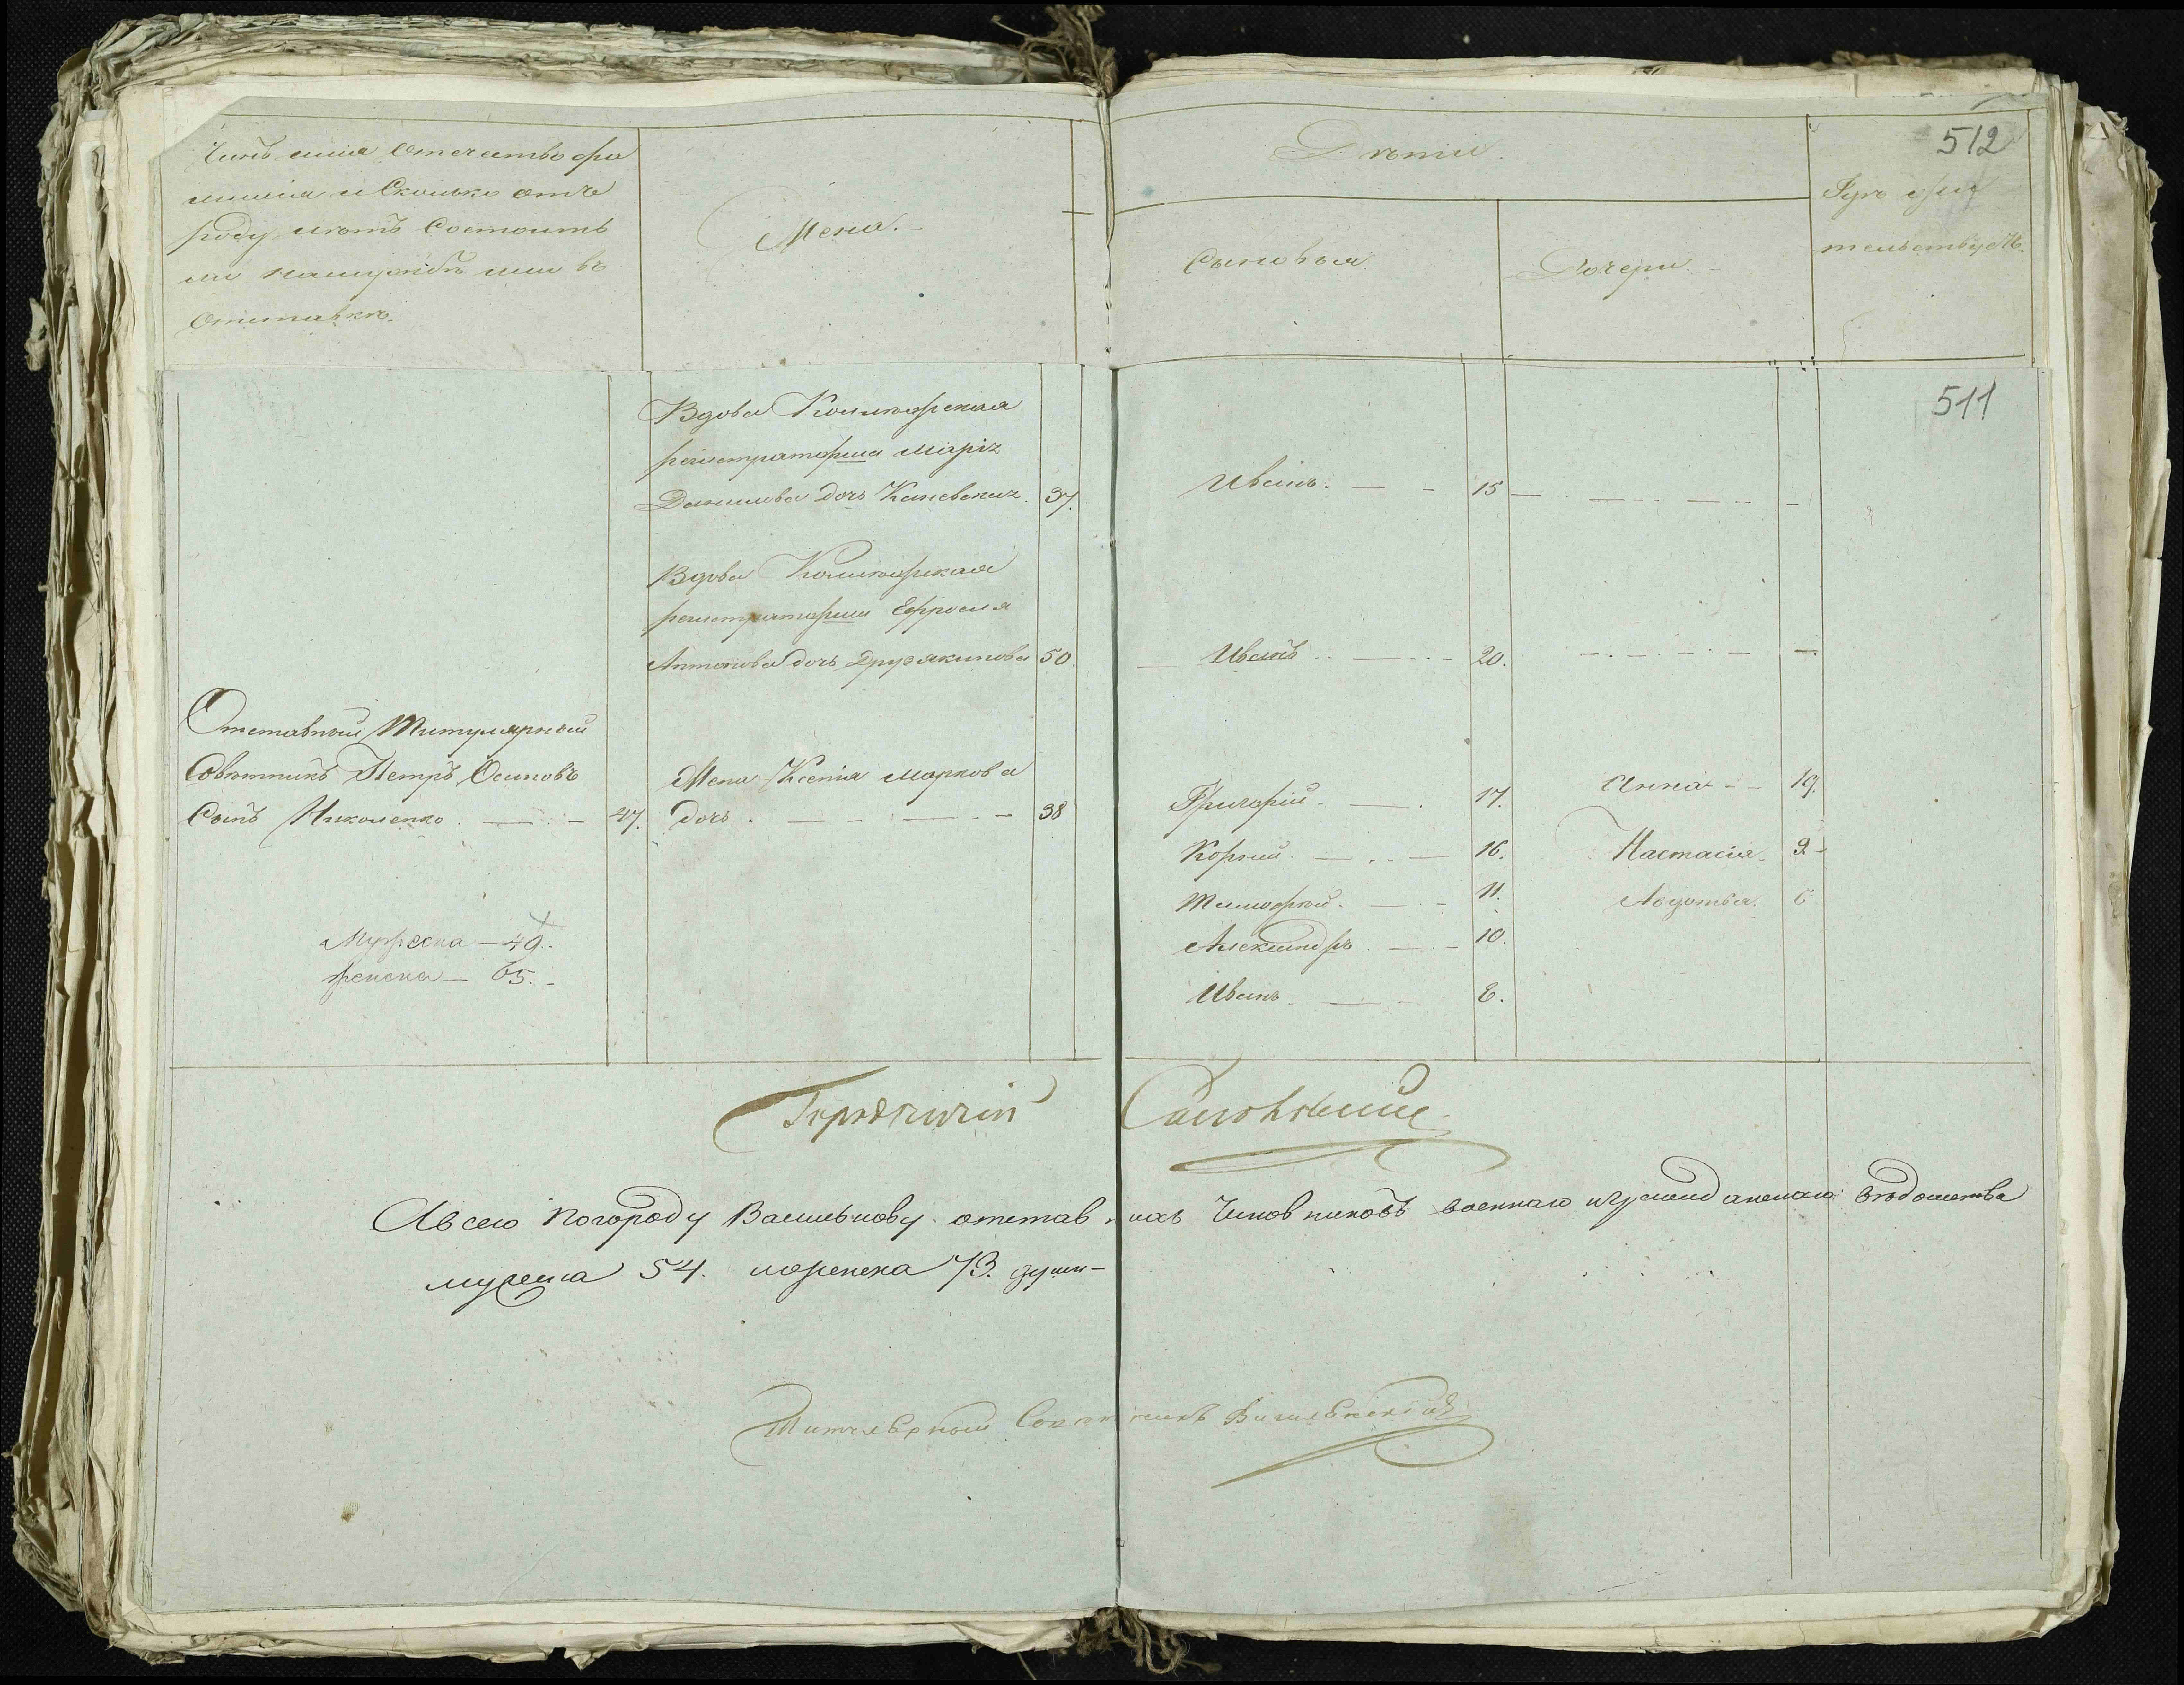 Чинъ имя Отечество фа
милія и Сколько отъ
роду лѣтъ Состоитъ
ли наслужбѣ или въ
Отставкѣ.
Жена.
Дѣти.
Сыновья.
Дочери.
Гдѣ жи
тельствуетъ.
512
511
Вдова Коллежская
регистраторша Марія
Данилова дочь Каневская. 37.
Иванъ. 15
Вдова Коллежская
регистраторша Ефросия
Антонова дочь 50.
Иванъ 20.
Отставный Титулярный
Совѣтникъ Петръ Осиповъ
Сынъ Николенко. 47.
Жена Ксенія Маркова
дочь. 38
Григорій. 17.
Анна 19.
Корній. 16.
Настасія. 9
Тимофей. 11.
Авдотья. 6
Александръ 10.
Иванъ 8.
Мужеска — 49.
женска — 65.
Городничій
Авсего погороду Василькову отставныхъ Чиновниковъ военнаго игражданскаго вѣдомства
мужеска 54. иженска 73. души
Титулярный Советникъ